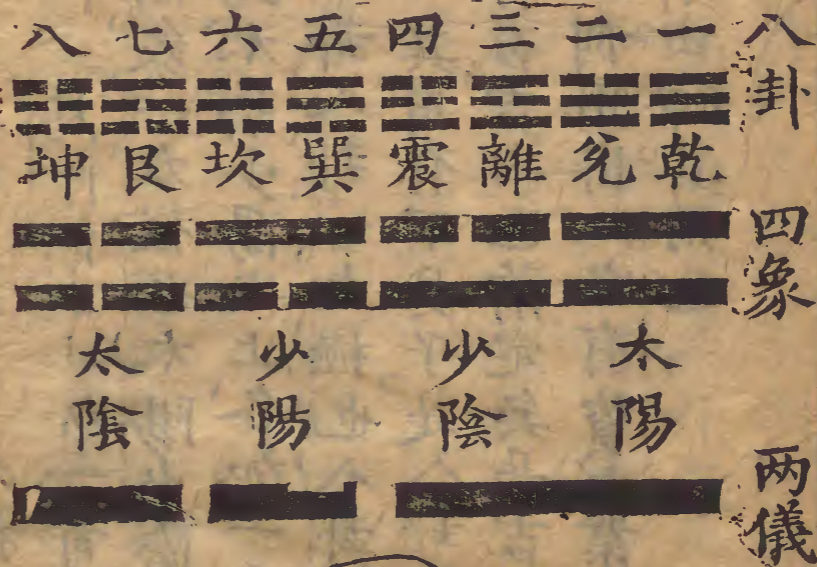 八卦
一 二 三 四 五 六 七 八
乾 兊 離 震 巽 坎 艮 坤
四象
太陽
少陰
少陽
太陰
两儀